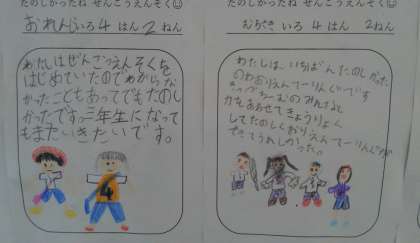 たのしかったね ぜんこうえんそく☺
おれんじいろ4 はん 2ねん
わたしはぜんこうえんそくを
はじめていったのでわからな
かったこともあってでもたのし
かったです。三年生になって
もまたいきたいです。
4
たのしかったね ぜんこうえんそく☺
むらさきいろ 4 はん 2ねん
わたしは、いちばんたのしかった
のわおりえんてーりんぐです
ちーむのみんなと
力をあわせてきょうりょく
してたのしくおりえんてーりんぐが
できてうれしかった。